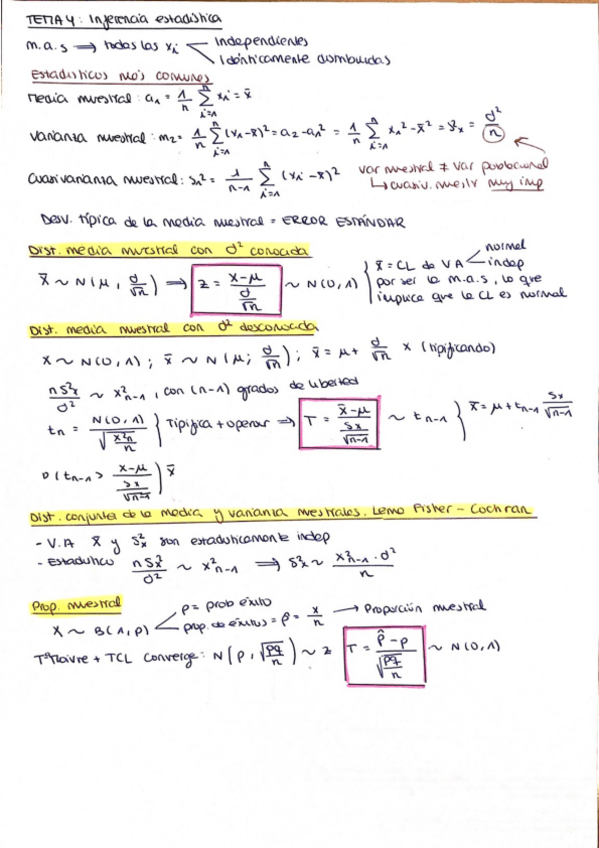 TEMA 4: Inferencia estadística
m.a.s ⟹ todas las xi < Independientes
Idénticamente distribuidas
Estadísticos más comunes
Media muestral: a1 = 1/n Σ(i=1, n) xi = x̄
Varianza muestral: m2 = 1/n Σ(i=1, n) (xi - x̄)² = a2 - a1² = 1/n Σ(i=1, n) xi² - x̄² = S²x = σ²/n
Cuasivarianza muestral: s1² = 1/(n-1) Σ(i=1, n) (xi - x̄)²
var muestral ≠ var poblacional
↳ cuasiv. muestr muy imp
Desv. típica de la media muestral = ERROR ESTÁNDAR
Dist. media muestral con σ² conocida
x̄ ~ N(μ, σ/√n) ⟹ Z = (x-μ)/(σ/√n) ~ N(0,1) } x̄ = CL de VA < normal
indep
por ser la m.a.s, lo que
implica que la CL es normal
Dist. media muestral con σ² desconocida
X ~ N(0,1); x̄ ~ N(μ; σ/√n); x̄ = μ + σ/√n x (tipificando)
nS²x/σ² ~ x²n-1, con (n-1) grados de libertad
tn = N(0,1)/√(x²n/n) } Tipifica + operar ⟹ T = (x̄-μ)/(Sx/√n-1) ~ tn-1 } x̄ = μ + tn-1 Sx/√n-1
P(tn-1 > (x-μ)/(Sx/√n-1)) x̄
Dist. conjunta de la media y varianza muestrales. Lema Fisher - Cochran
- V.A x̄ y S²x son estadísticamente indep
- Estadístico nSx²/σ² ~ x²n-1 ⟹ S²x ~ x²n-1 · σ²/n
Prop. muestral
X ~ B(1,p) < p = prob éxito
prop. de éxitos = p̂ = x/n → Proporción muestral
Tª Moivre + TCL converge: N(p, √(pq/n)) ~ Z T = (p̂ - p)/√(pq/n) ~ N(0,1)